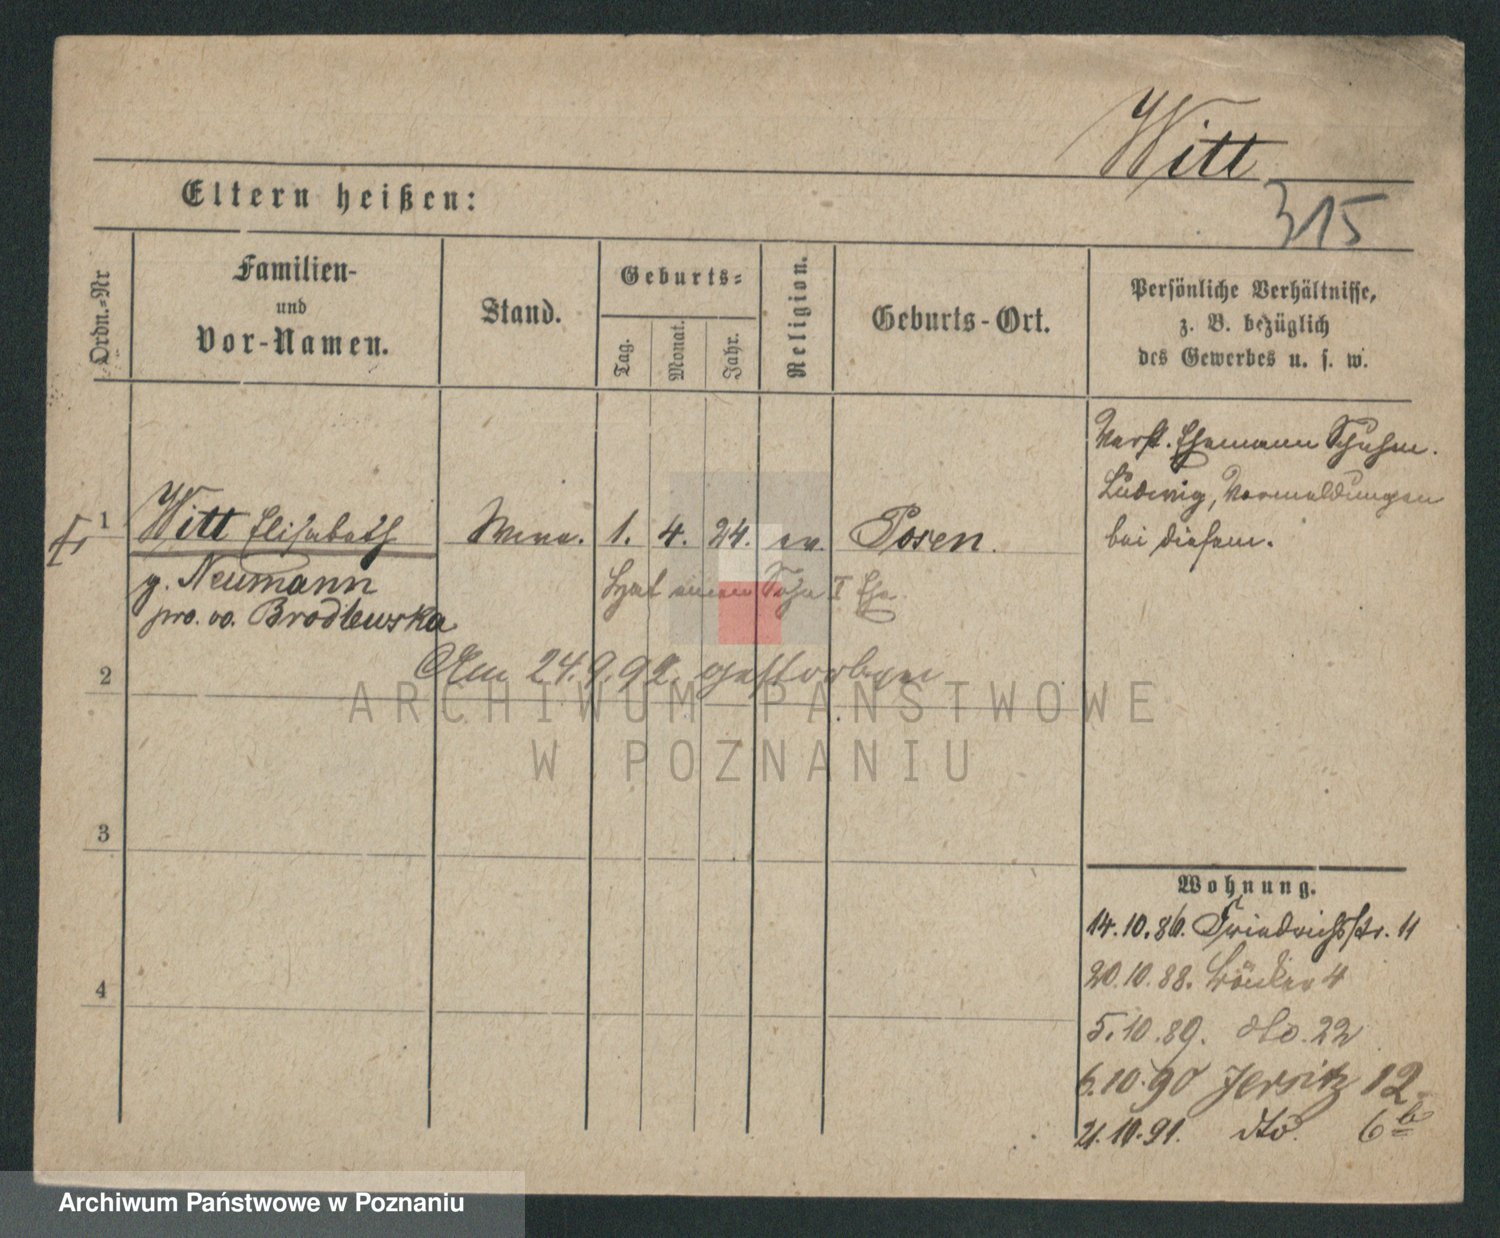 Witt
315
Eltern heißen:
Ordn.-Nr
Familien-
und
Vor-Namen.
Stand.
Geburts-
Tag.
Monat.
Jahr.
Religion.
Geburts-Ort.
Persönliche Verhältnisse,
z. B. bezüglich
des Gewerbes u. s. w.
Verst. Ehemann Schuhm.
Ludwig, Vormeldungen
bei diesem.
1 Witt Elisabeth Wwe. 1. 4. 24. ev. Posen.
g. Neumann
pro. vo. Brodlewska
hat einen Sohn I Ehe.
2 Am 24.9.92. gestorben
ARCHIWUM PAŃSTWOWE
W POZNANIU
3
4
Wohnung.
14.10.86. Friedrichsstr. 11
20.10.88. 4
5.10.89. dto. 22
6.10.90 Jersitz 12
21.10.91. dto. 6b
Archiwum Państwowe w Poznaniu